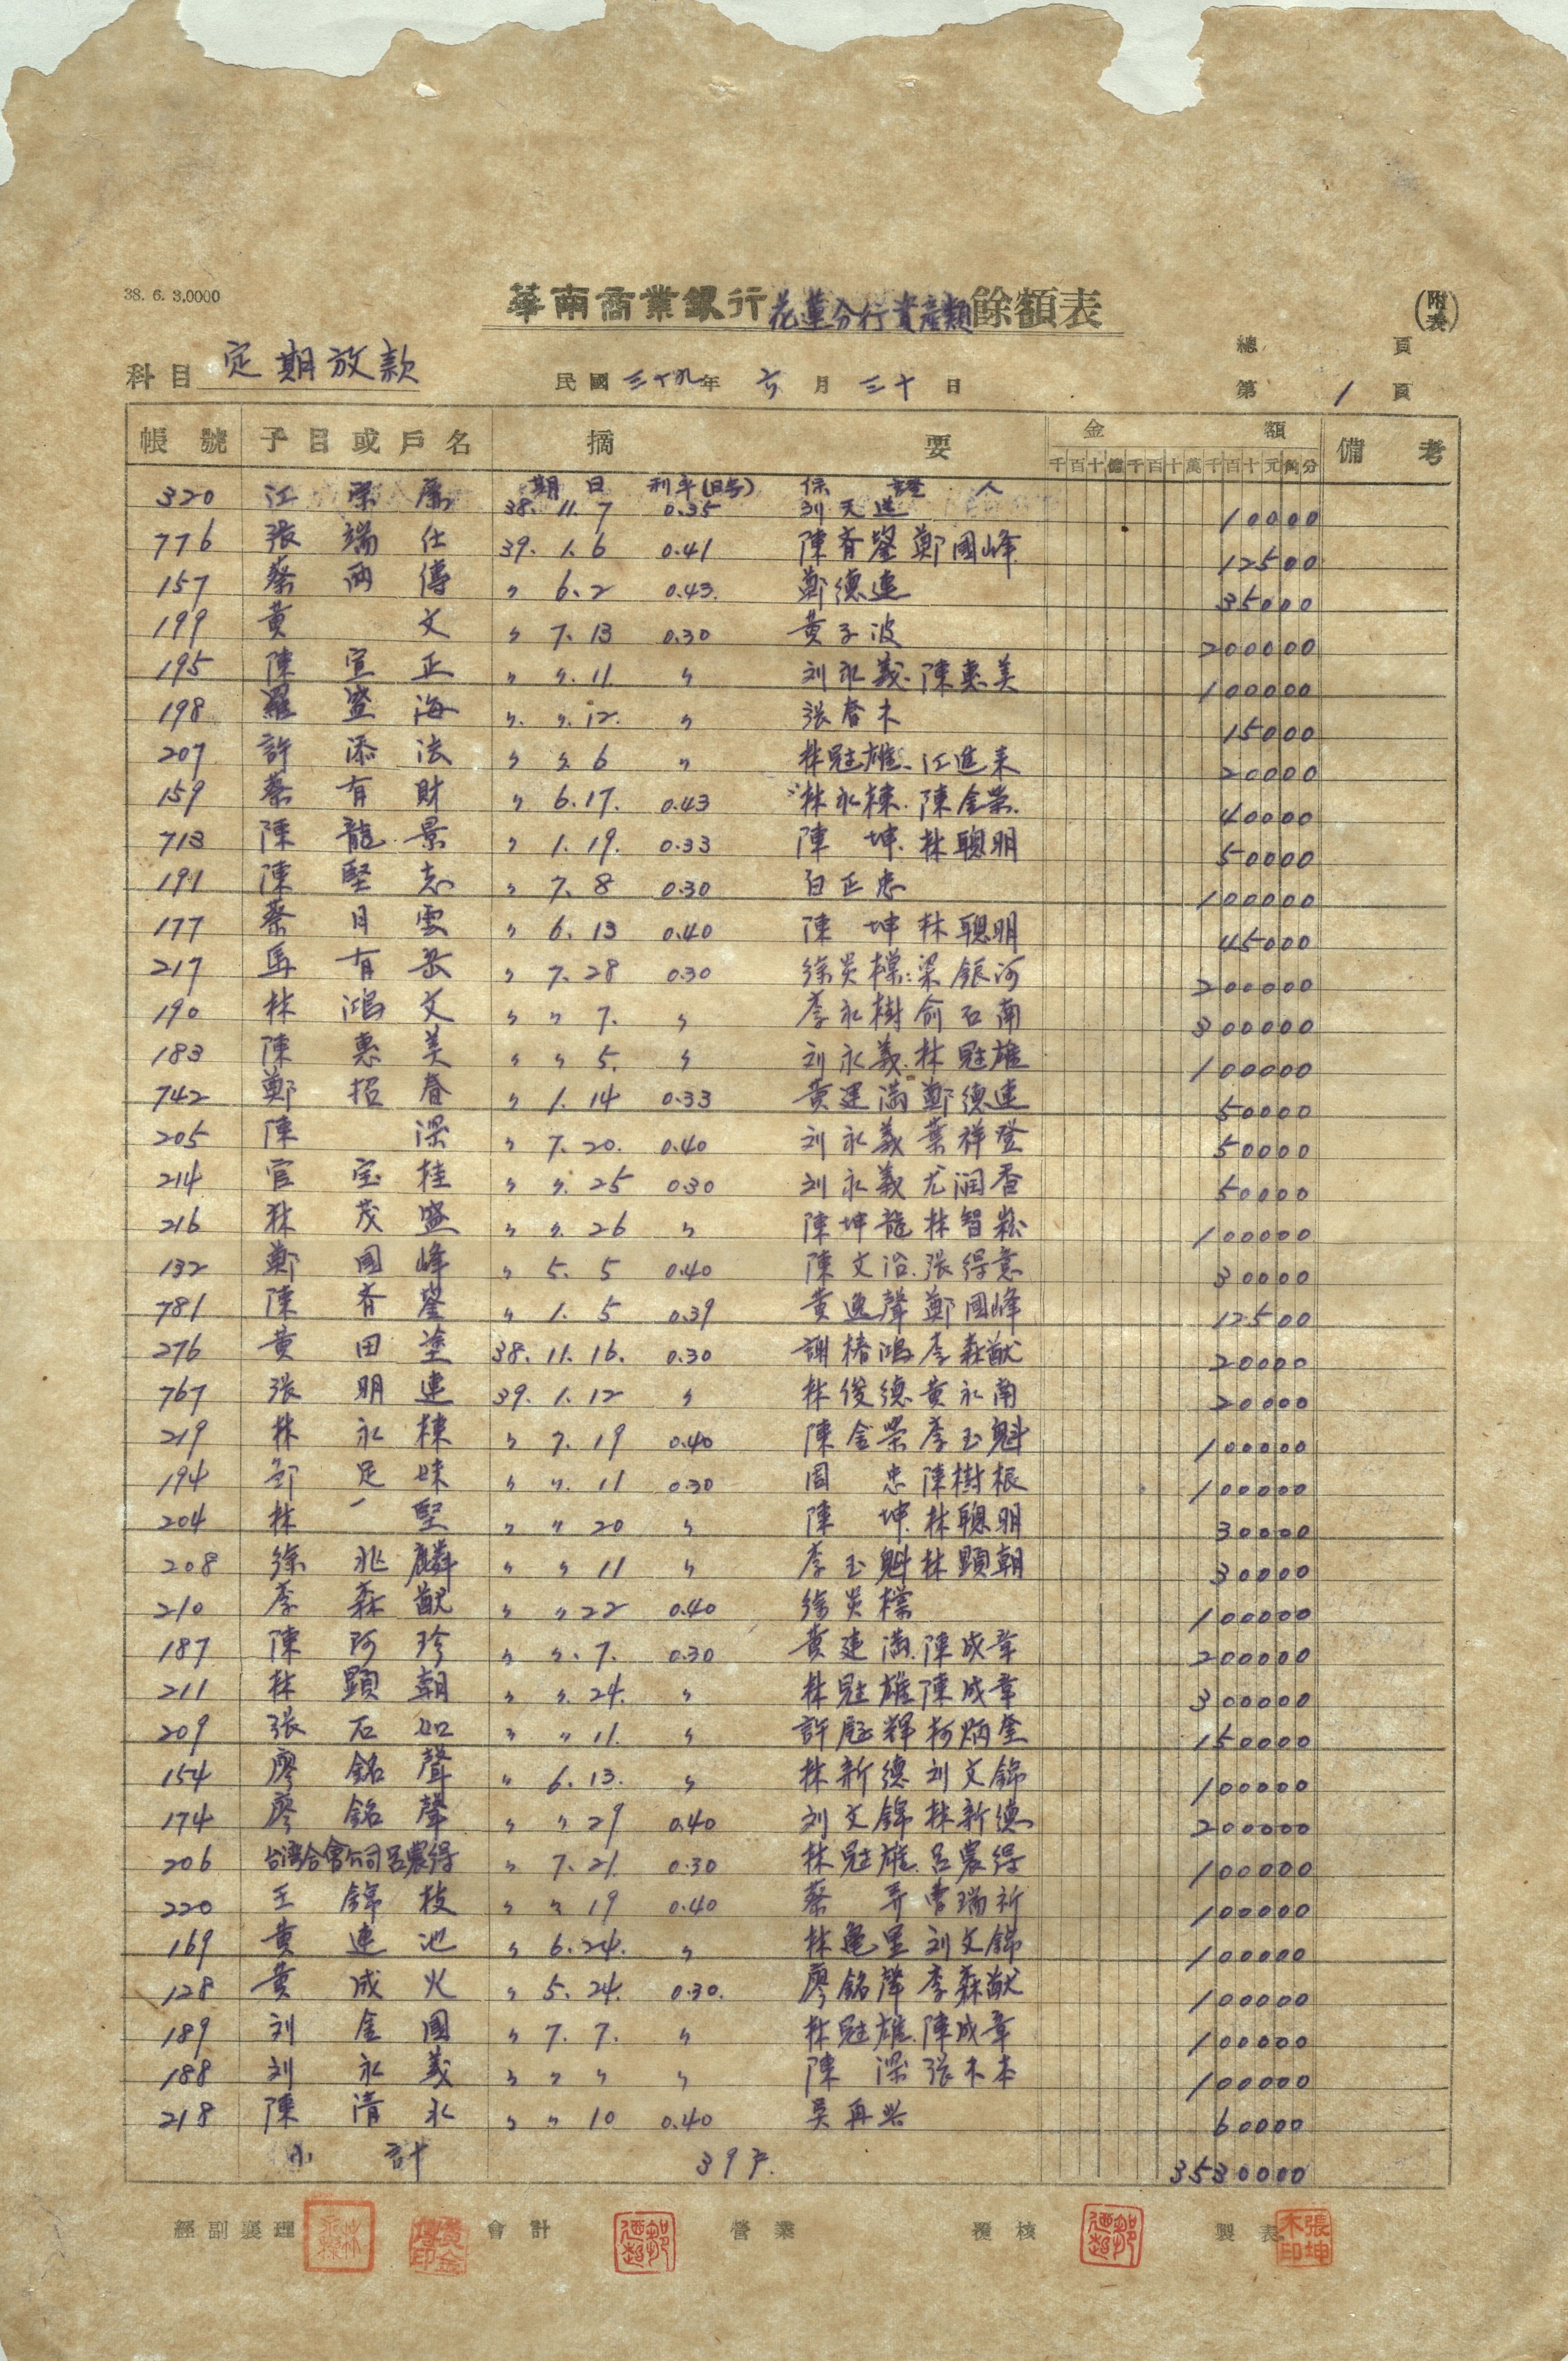 38. 6. 3,0000
華南商業銀行花蓮分行資產類餘額表
(附表)
總 頁
科目 定期放款 民國三十九年 六月 三十日 第 1 頁
帳號 子目或戶名 摘要 金額 備考
千百十億千百十萬千百十元角分
期日 利率(日步) 保證人
320 江榮 38. 11. 7 0.35 刘天送 10000
776 張端仕 39. 1. 6 0.41 陳齊鑾 鄭國峰 12500
157 蔡兩傳 〃 6. 2 0.43 鄭德連 35000
199 黃文 〃 7. 13 0.30 黃子波 200000
195 陳宣正 〃 〃 11 〃 刘永義 陳惠美 100000
198 羅盛海 〃 〃 12 〃 張春木 15000
207 許添法 〃 〃 6 〃 林冠雄 江進來 20000
159 蔡有財 〃 6. 17. 0.43 林永棟 陳金榮 40000
713 陳龍景 〃 1. 19. 0.33 陳坤 林聰明 50000
191 陳堅志 〃 7. 8 0.30 白正忠 100000
177 蔡月雲 〃 6. 13 0.40 陳坤 林聰明 45000
217 馬有岳 〃 7. 28 0.30 徐炭標 梁銀河 200000
190 林鴻文 〃 〃 7. 〃 李永樹 俞石南 300000
183 陳惠美 〃 〃 5. 〃 刘永義 林冠雄 100000
742 鄭招春 〃 1. 14 0.33 黃建滿 鄭德連 50000
205 陳深 〃 7. 20. 0.40 刘永義 葉祥登 50000
214 官宝桂 〃 〃 25 0.30 刘永義 尤潤香 50000
216 林茂盛 〃 〃 26 〃 陳坤龍 林智崧 100000
132 鄭國峰 〃 5. 5 0.40 陳文浴 張得意 30000
781 陳齊鑾 〃 1. 5 0.39 黃逸聲 鄭國峰 12500
276 黃田塗 38. 11. 16. 0.30 謝椿鴻 李森猷 20000
767 張明連 39. 1. 12 〃 林俊德 黃永南 20000
219 林永棟 〃 7. 19 0.40 陳金榮 李玉魁 100000
194 鄧足妹 〃 〃 11 0.30 周忠 陳樹根 100000
204 林一堅 〃 〃 20 〃 陳坤 林聰明 30000
208 徐兆麟 〃 〃 11 〃 李玉魁 林顯朝 30000
210 李森猷 〃 〃 22 0.40 徐炭標 100000
187 陳阿珍 〃 〃 7. 0.30 黃建滿 陳成章 200000
211 林顯朝 〃 〃 24. 〃 林冠雄 陳成章 300000
209 張石如 〃 〃 11. 〃 許廷輝 柯炳奎 150000
154 廖銘聲 〃 6. 13. 〃 林新德 刘文錦 100000
174 廖銘聲 〃 〃 29 0.40 刘文錦 林新德 200000
206 台湾合會公司呂農得 〃 7. 21. 0.30 林冠雄 呂農得 100000
220 王錦枝 〃 〃 19 0.40 蔡弄 曹瑞祈 100000
169 黃連池 〃 6. 24. 〃 林龜里 刘文錦 100000
128 黃成火 〃 5. 24. 0.30. 廖銘聲 李森猷 100000
189 刘金國 〃 7. 7. 〃 林冠雄 陳成章 100000
188 刘永義 〃 〃 〃 〃 陳深 張木本 100000
218 陳清水 〃 〃 10 0.40 吳再兴 60000
小計 39戶. 3530000
經副襄理 會計 營業 覆核 製表
張坤木印